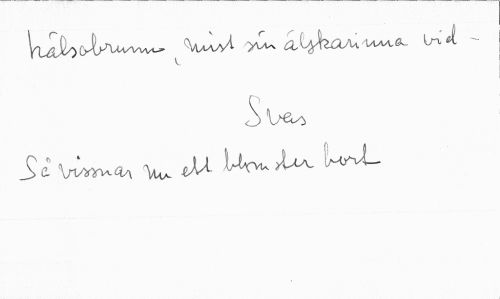 hälsobrunn, mist sin älskarinna vid -
Svas
Så vissnar nu ett blomster bort